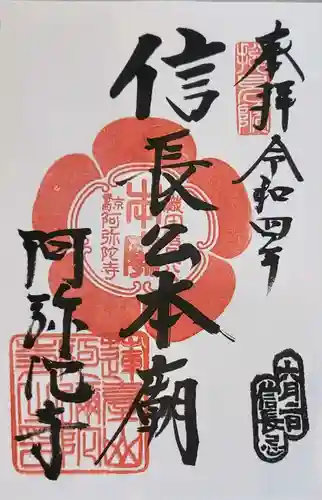 奉拝
令和四年
信長公本廟
阿弥陀寺
京都
阿弥陀寺
本廟
六月二日
信長忌